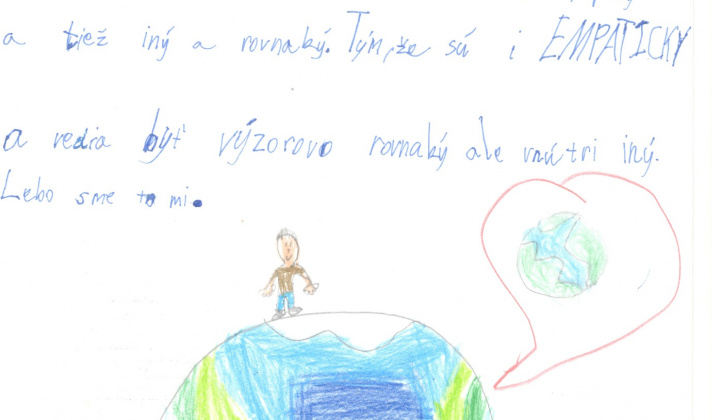 a tiež iný a rovnaký. Tým, že sú i EMPATICKY
a vedia byť výzorovo rovnaký ale vnútri iný.
Lebo sme to mi.